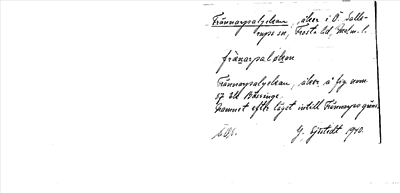 Frännarpsalyckan, åker i Ö. Sallerups sn, Frosta hd, Malm. l.
fränarpsalökan
Frännarpsalyckan, åker å fig som
57 Bässinge.
Namnet efter läget intill Frännarps gräns.
G. Sjöstedt 1940.